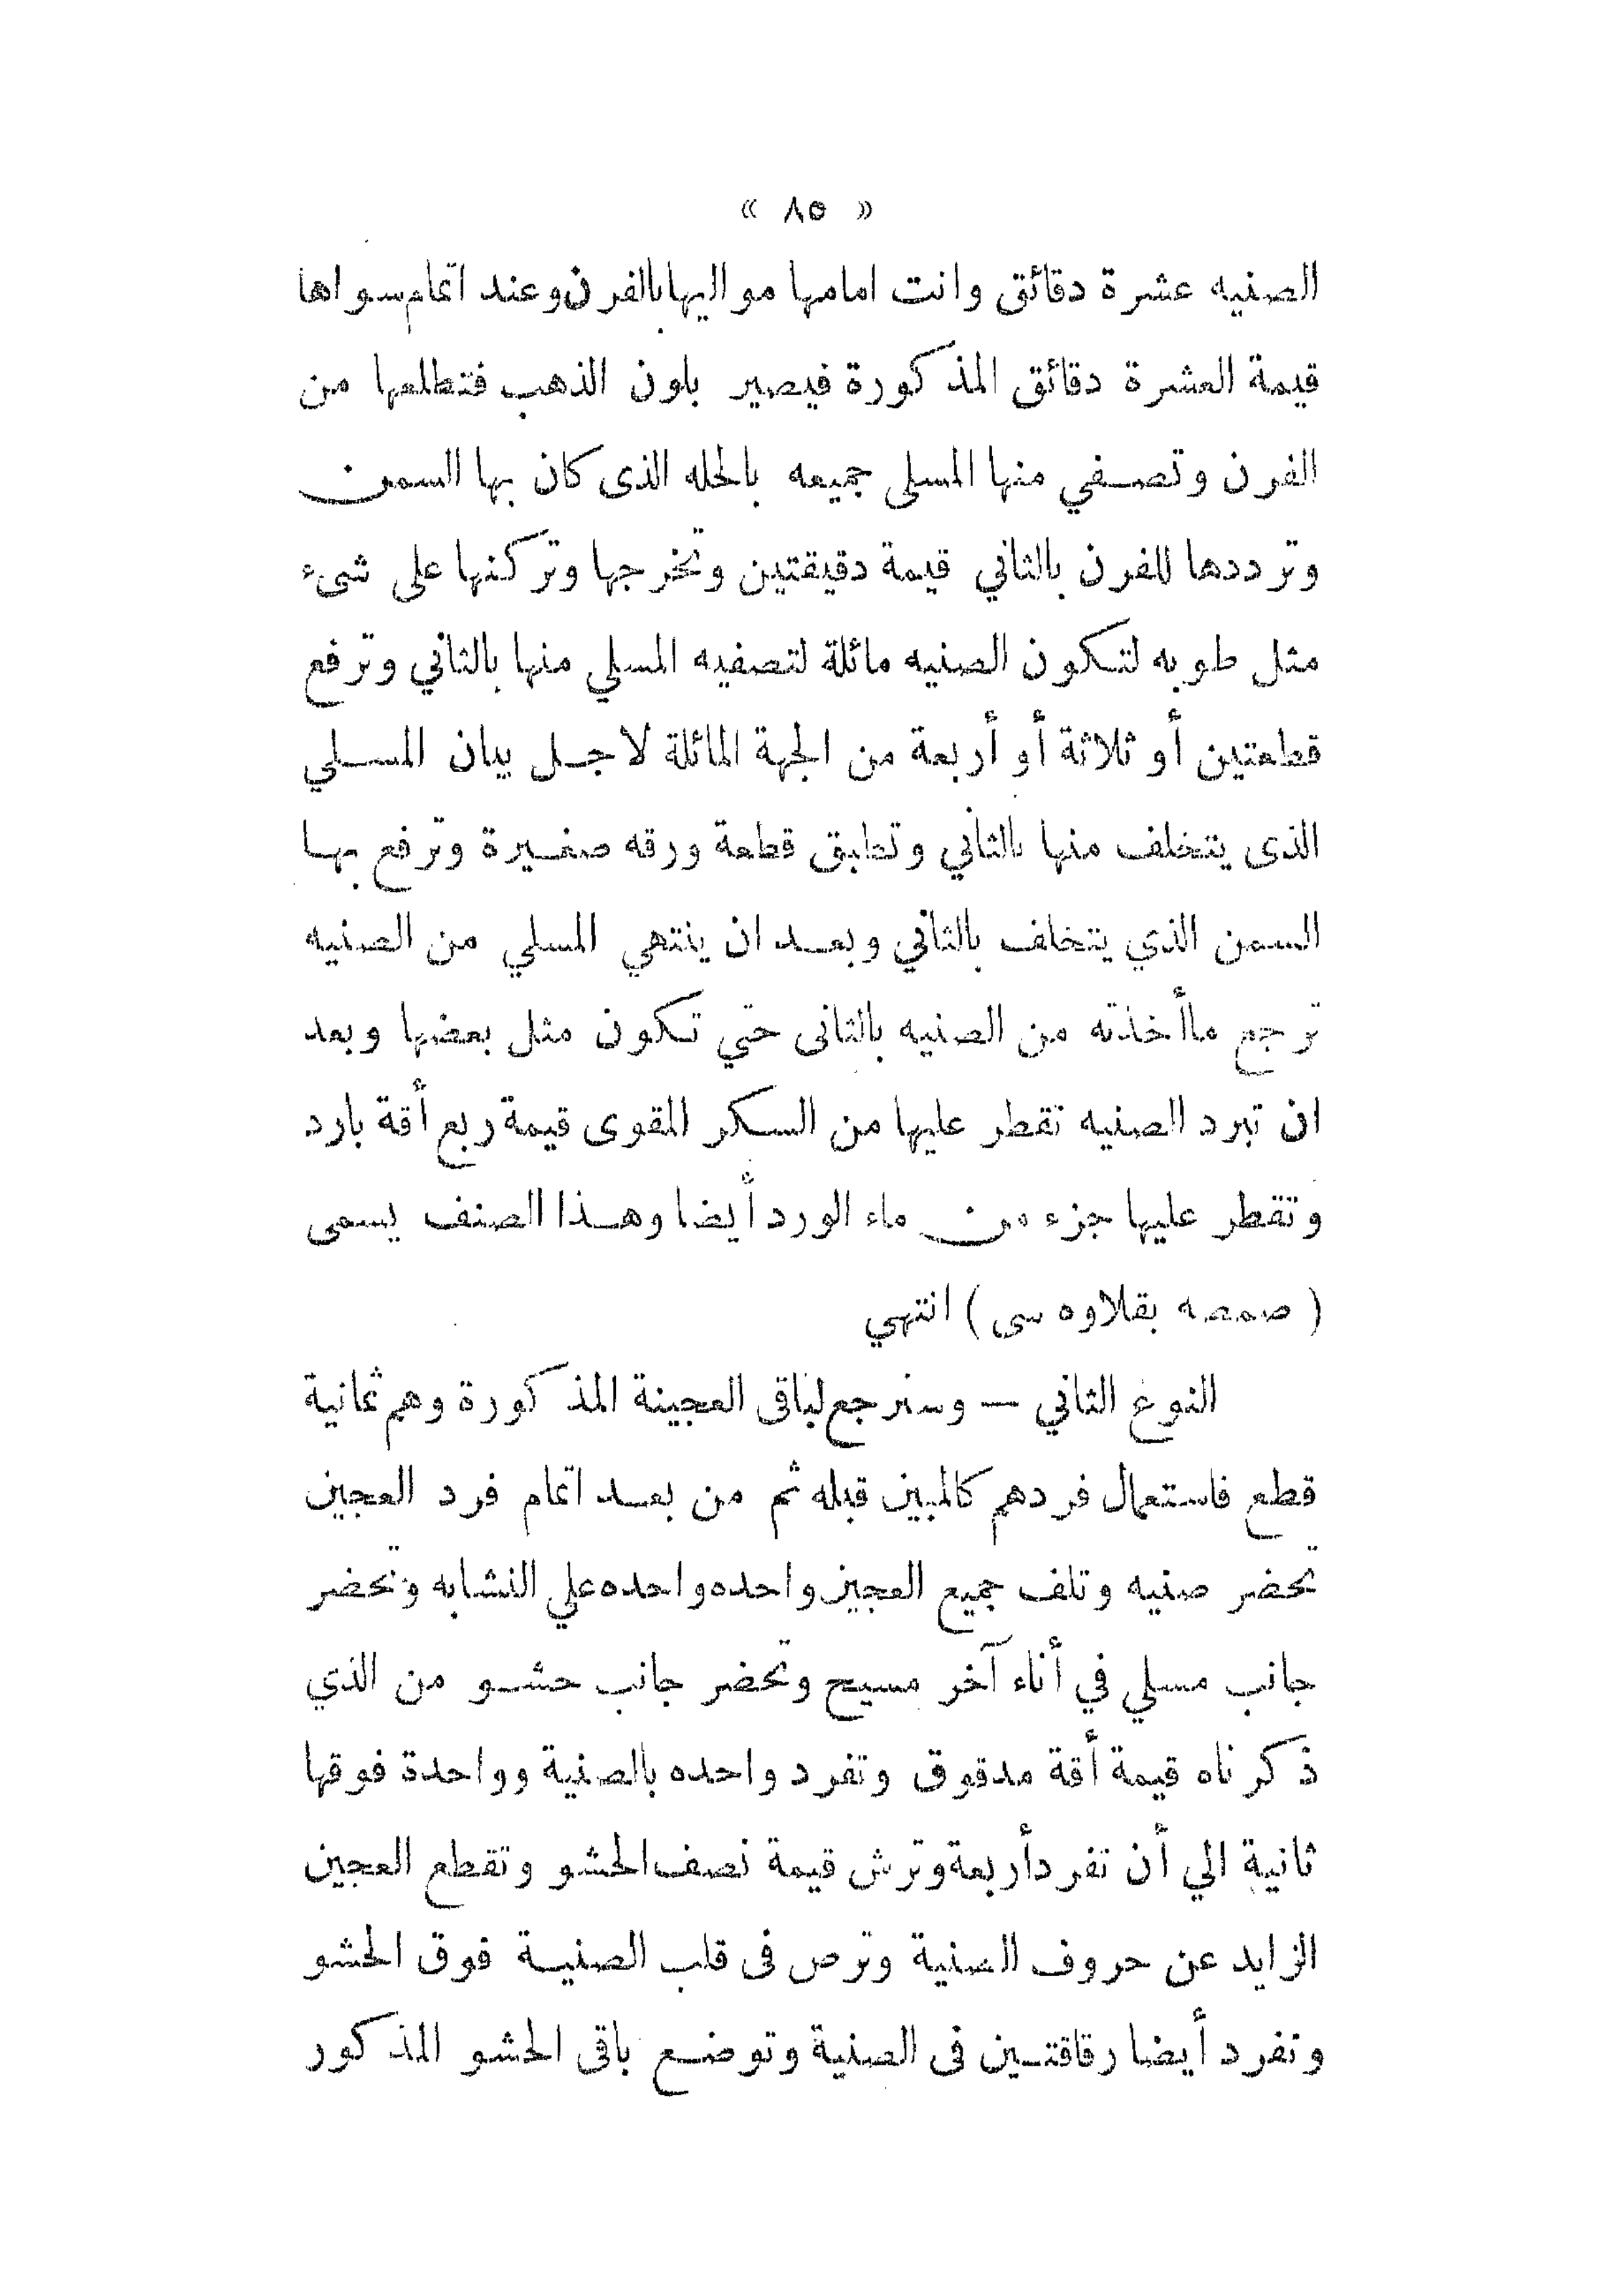 « ٨٥ »
الصنيه عشرة دقائق وانت امامها مواليها بالفرن وعند اتمام سواها
قيمة العشرة دقائق المذكورة فيصير بلون الذهب فتطلعها من
الفرن وتصفي منها المسلى جميعه بالحله الذى كان بها السمن
وترددها للفرن بالثاني قيمة دقيقتين وتخرجها وتركنها على شىء
مثل طوبه لتكون الصنيه مائلة لتصفيه المسلي منها بالثاني وترفع
قطعتين أو ثلاثة أو أربعة من الجهة المائلة لاجل بيان المسلي
الذى يتخلف منها بالثاني وتطبق قطعة ورقه صغيرة وترفع بها
السمن الذي يتخلف بالثاني وبعد ان ينتهي المسلي من الصنيه
ترجع ماأخذته من الصنيه بالثانى حتي تكون مثل بعضها وبعد
ان تبرد الصنيه تقطر عليها من السكر المقوى قيمة ربع أقة بارد
وتقطر عليها جزء من ماء الورد أيضا وهذا الصنف يسمى
( صمصه بقلاوه سى ) انتهي
النوع الثاني — وسنرجع لباقى العجينة المذكورة وهم ثمانية
قطع فاستعمال فردهم كالمبين قبله ثم من بعد اتمام فرد العجين
تحضر صنيه وتلف جميع العجين واحده واحده علي النشابه وتحضر
جانب مسلي في أناء آخر مسيح وتحضر جانب حشو من الذي
ذكرناه قيمة أقة مدقوق وتفرد واحده بالصنية وواحدة فوقها
ثانية الي أن تفرد أربعة وترش قيمة نصف الحشو وتقطع العجين
الزايد عن حروف الصنية وترص فى قلب الصنية فوق الحشو
وتفرد أيضا رقاقتين فى الصنية وتوضع باقى الحشو المذكور